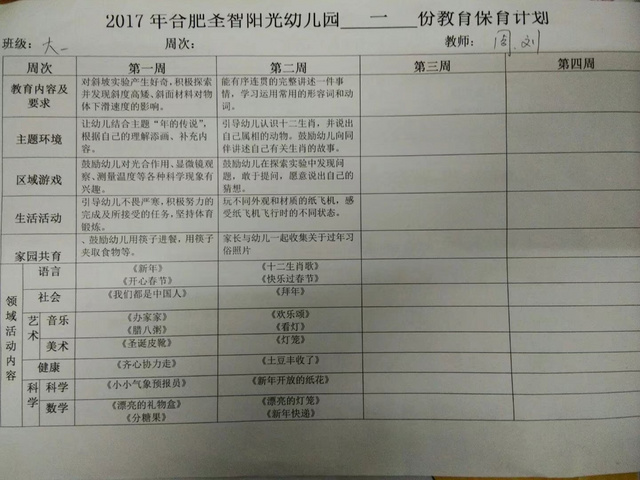 2017年合肥圣智阳光幼儿园 一 份教育保育计划
班级: 大一 周次: 教师: 周.刘
周次 第一周 第二周 第三周 第四周
教育内容及要求
对斜坡实验产生好奇,积极探索
并发现斜度高矮、斜面材料对物
体下滑速度的影响。
能有序连贯的完整讲述一件事
情,学习运用常用的形容词和动
词。
主题环境
让幼儿结合主题“年的传说”,
根据自己的理解添画、补充内
容。
引导幼儿认识十二生肖,并说出
自己属相的动物。鼓励幼儿向同
伴讲述自己有关生肖的故事。
区域游戏
鼓励幼儿对光合作用、显微镜观
察、测量温度等各种科学现象有
兴趣。
鼓励幼儿在探索实验中发现问
题,敢于提问,愿意说出自己的
猜想。
生活活动
引导幼儿不畏严寒,积极努力的
完成及所接受的任务,坚持体育
锻炼。
玩不同外观和材质的纸飞机,感
受纸飞机飞行时的不同状态。
家园共育
、鼓励幼儿用筷子进餐,用筷子
夹取食物等。
家长与幼儿一起收集关于过年习
俗照片
领域活动内容
语言
《新年》
《开心春节》
《十二生肖歌》
《快乐过春节》
社会 《我们都是中国人》 《拜年》
艺术
音乐
《办家家》
《腊八粥》
《欢乐颂》
《看灯》
美术 《圣诞皮靴》 《灯笼》
健康 《齐心协力走》 《土豆丰收了》
科学
科学 《小小气象预报员》 《新年开放的纸花》
数学
《漂亮的礼物盒》
《分糖果》
《漂亮的灯笼》
《新年快递》